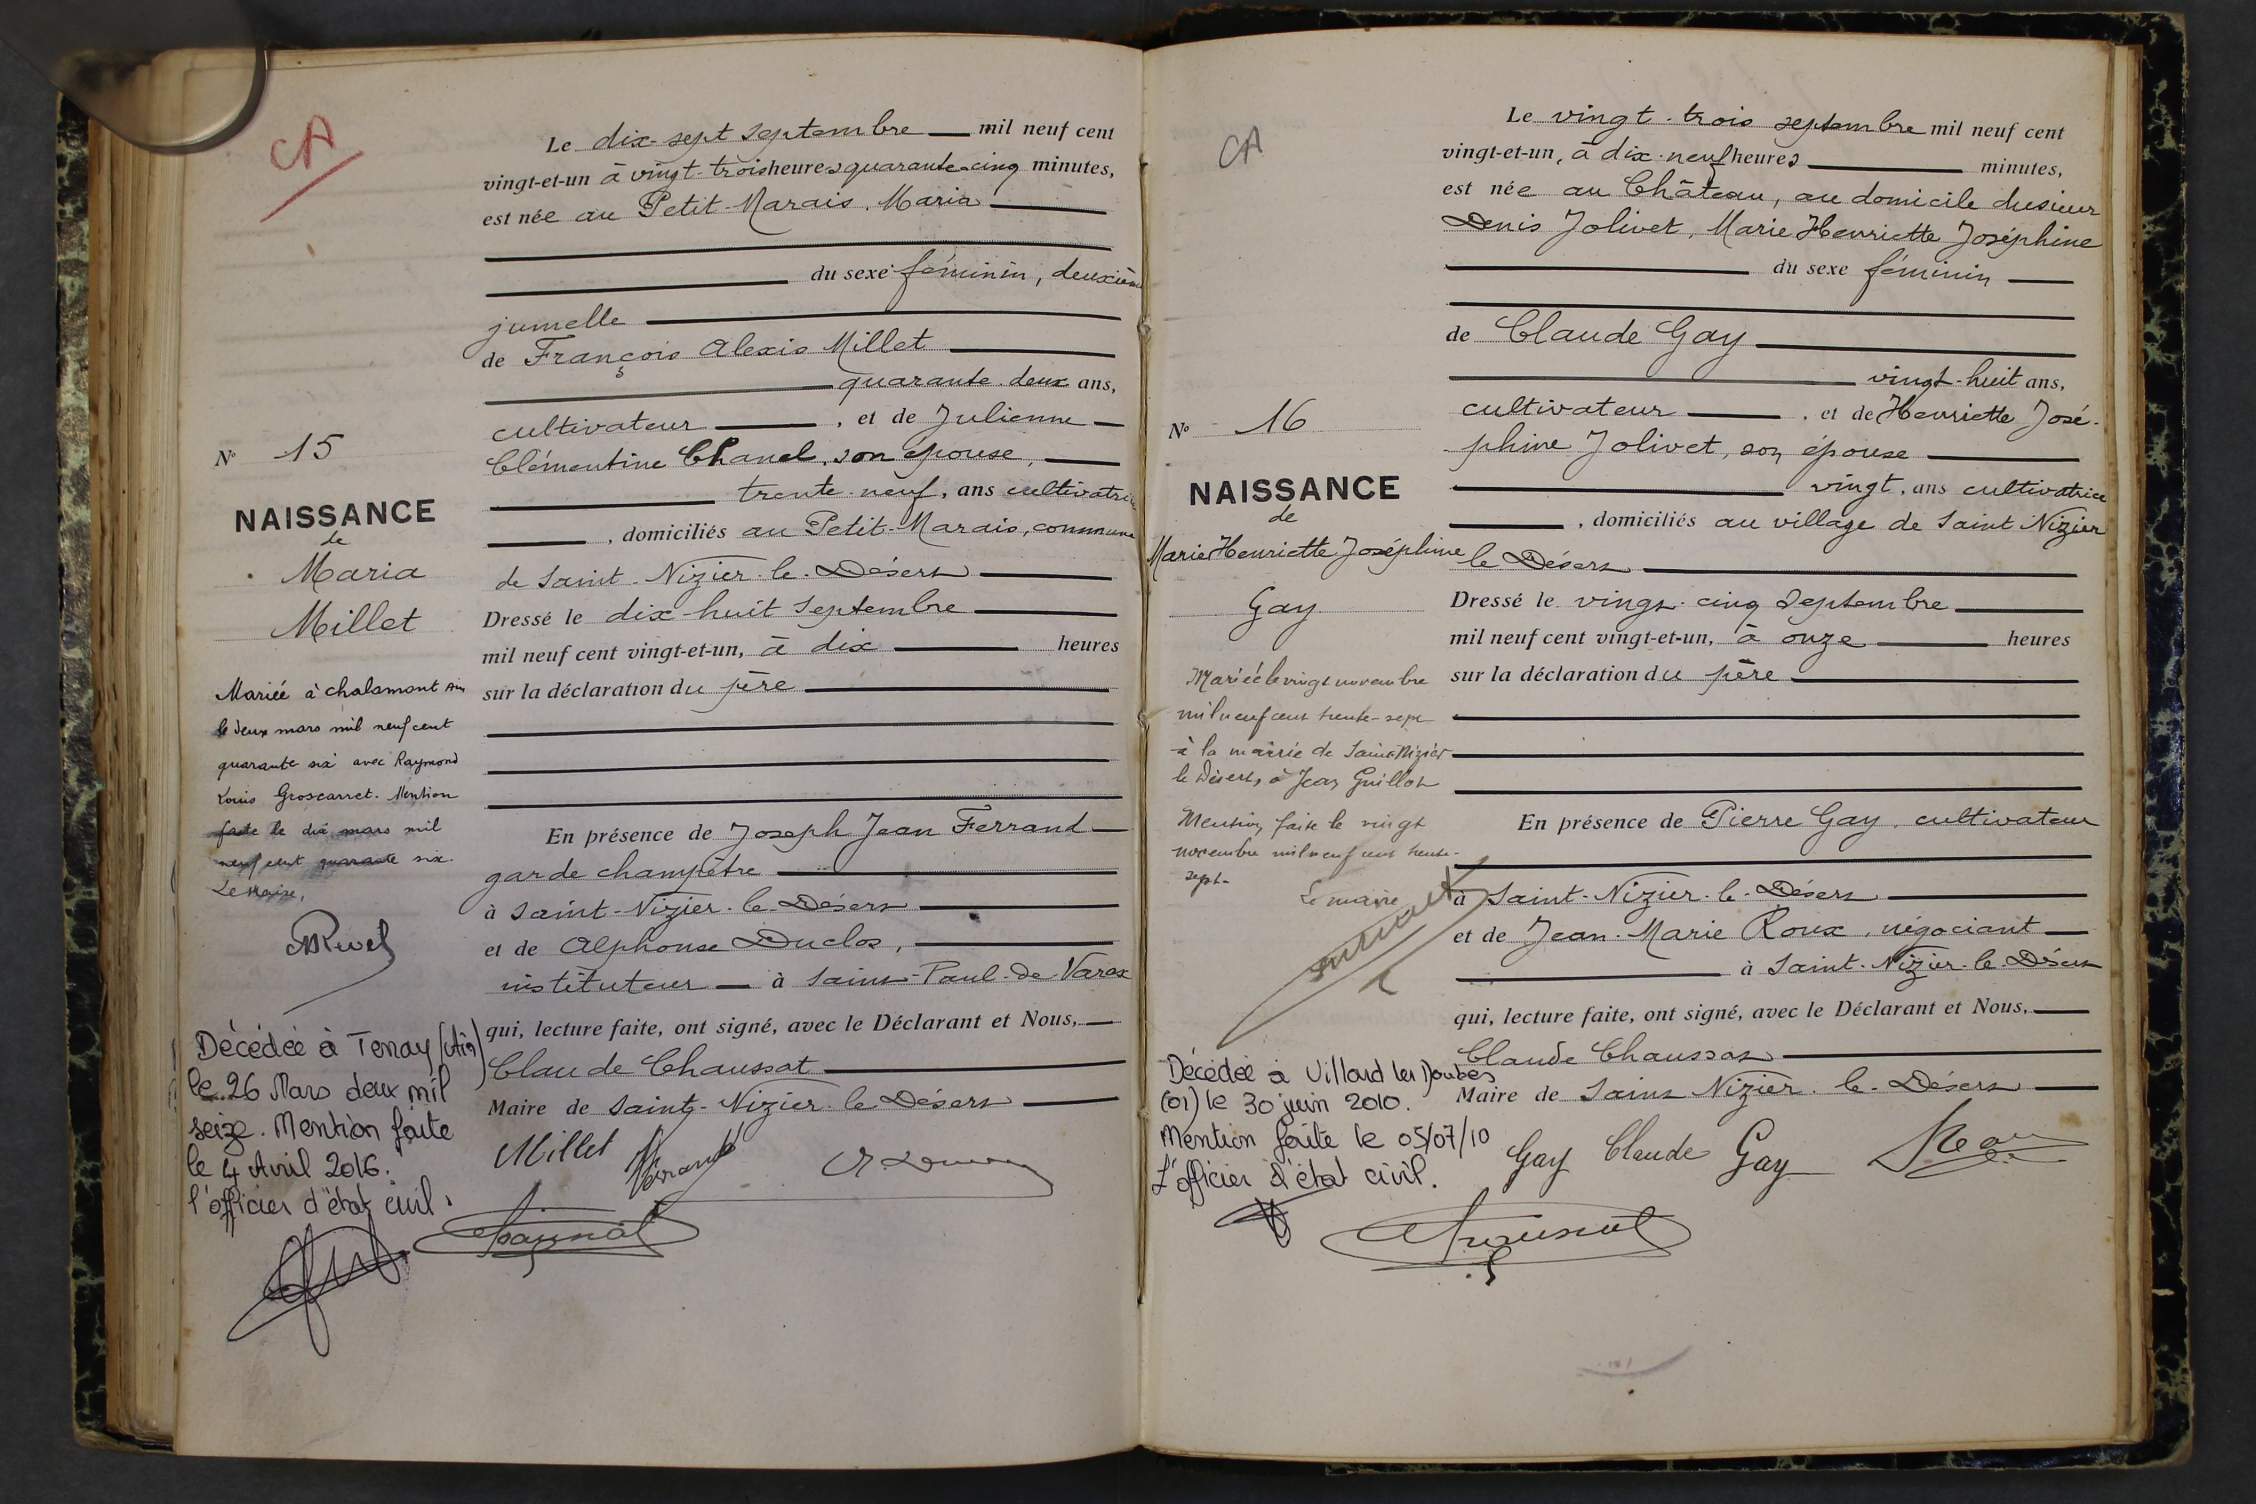 CA
Le dix-sept septembre mil neuf cent
vingt-et-un à vingt-trois heures quarante-cinq minutes,
est née au Petit-Marais, Maria
du sexe féminin, deuxième
jumelle
de François Alexis Millet
quarante-deux ans,
cultivateur, et de Julienne
Clémentine Chanel, son épouse,
trente-neuf, ans cultivatrice
, domiciliés au Petit-Marais, commune
de Saint-Nizier-le-Désert
Dressé le dix-huit septembre
mil neuf cent vingt-et-un, à dix heures
sur la déclaration du père
En présence de Joseph Jean Ferrand
garde champêtre
à Saint-Nizier-le-Désert
et de Alphonse Duclos,
instituteur à Saint-Paul-de-Varax
qui, lecture faite, ont signé, avec le Déclarant et Nous,
Claude Chaussat
Maire de Saint-Nizier-le-Désert
Millet
N° 15
NAISSANCE
de
Maria
Millet
Mariée à Chalamont Ain
le deux mars mil neuf cent
quarante six avec Raymond
Louis Groscarret. Mention
faite le dix mars mil
neuf cent quarante six.
Le Maire,
Décédée à Tenay (Ain)
le 26 Mars deux mil
seize. Mention faite
le 4 Avril 2016.
l'officier d'état civil.
CA
Le vingt-trois septembre mil neuf cent
vingt-et-un, à dix-neuf heures minutes,
est née au Château, au domicile du sieur
Denis Jolivet, Marie Henriette Joséphine
du sexe féminin
de Claude Gay
vingt-huit ans,
cultivateur, et de Henriette José-
phine Jolivet, son épouse
vingt, ans cultivatrice
, domiciliés au village de Saint Nizier
le Désert
Dressé le vingt-cinq septembre
mil neuf cent vingt-et-un, à onze heures
sur la déclaration du père
En présence de Pierre Gay, cultivateur
à Saint-Nizier-le-Désert
et de Jean-Marie Roux, négociant
à Saint-Nizier-le-Désert
qui, lecture faite, ont signé, avec le Déclarant et Nous,
Claude Chaussat
Maire de Saint Nizier-le-Désert
Gay Claude Gay
N° 16
NAISSANCE
de
Marie Henriette Joséphine
Gay
Mariée le vingt novembre
mil neuf cent trente-sept
à la mairie de Saint-Nizier
le Désert, à Jean Guillot
Mention faite le vingt
novembre mil neuf cent trente-
sept-
Le maire
Décédée à Villard les Dombes
(01) le 30 juin 2010.
Mention faite le 05/07/10
L'officier d'état civil.